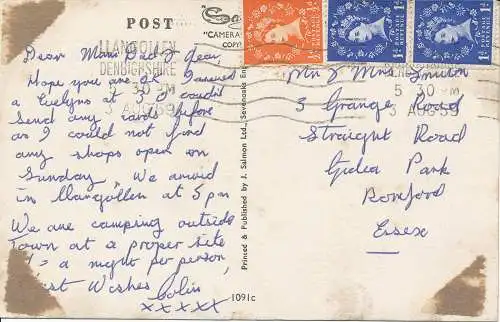 POST
"CAMERA
COPY
LLANGOLLEN
DENBIGHSHIRE
30 PM
3 AUG 59
5 30 PM
3 AUG 59
Dear Mum Dad & Jean,
Hope you are OK. I arrived
I couldn't
send any cards before
as I could not find
any shops open on
Sunday. We arrived
in Llangollen at 5 pm
We are camping outside
Town at a proper site
a night per person,
Best Wishes Colin
xxxxx
Printed & Published by J. Salmon Ltd., Sevenoaks
1091c
½d
1d
1d
POSTAGE REVENUE
Mr & Mrs Smith
3 Grange Road
Straight Road
Gidea Park
Romford
Essex